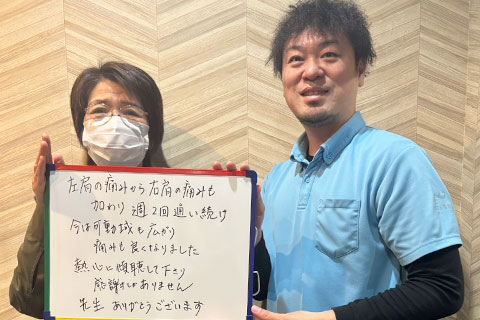 左肩の痛みから右肩の痛みも
加わり 週2回通い続け
今は可動域も広がり
痛みも良くなりました
熱心に傾聴して下さり
感謝しかありません
先生 ありがとうございます